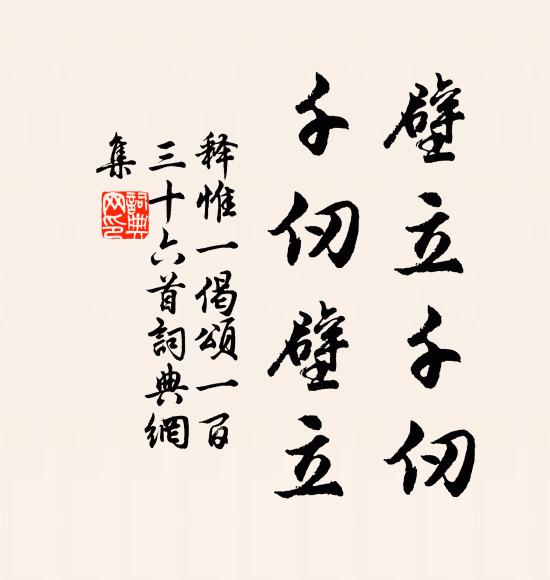 壁立千仞
千仞壁立
释惟一偈頌一百
三十六首詞典網
集
詞典網印